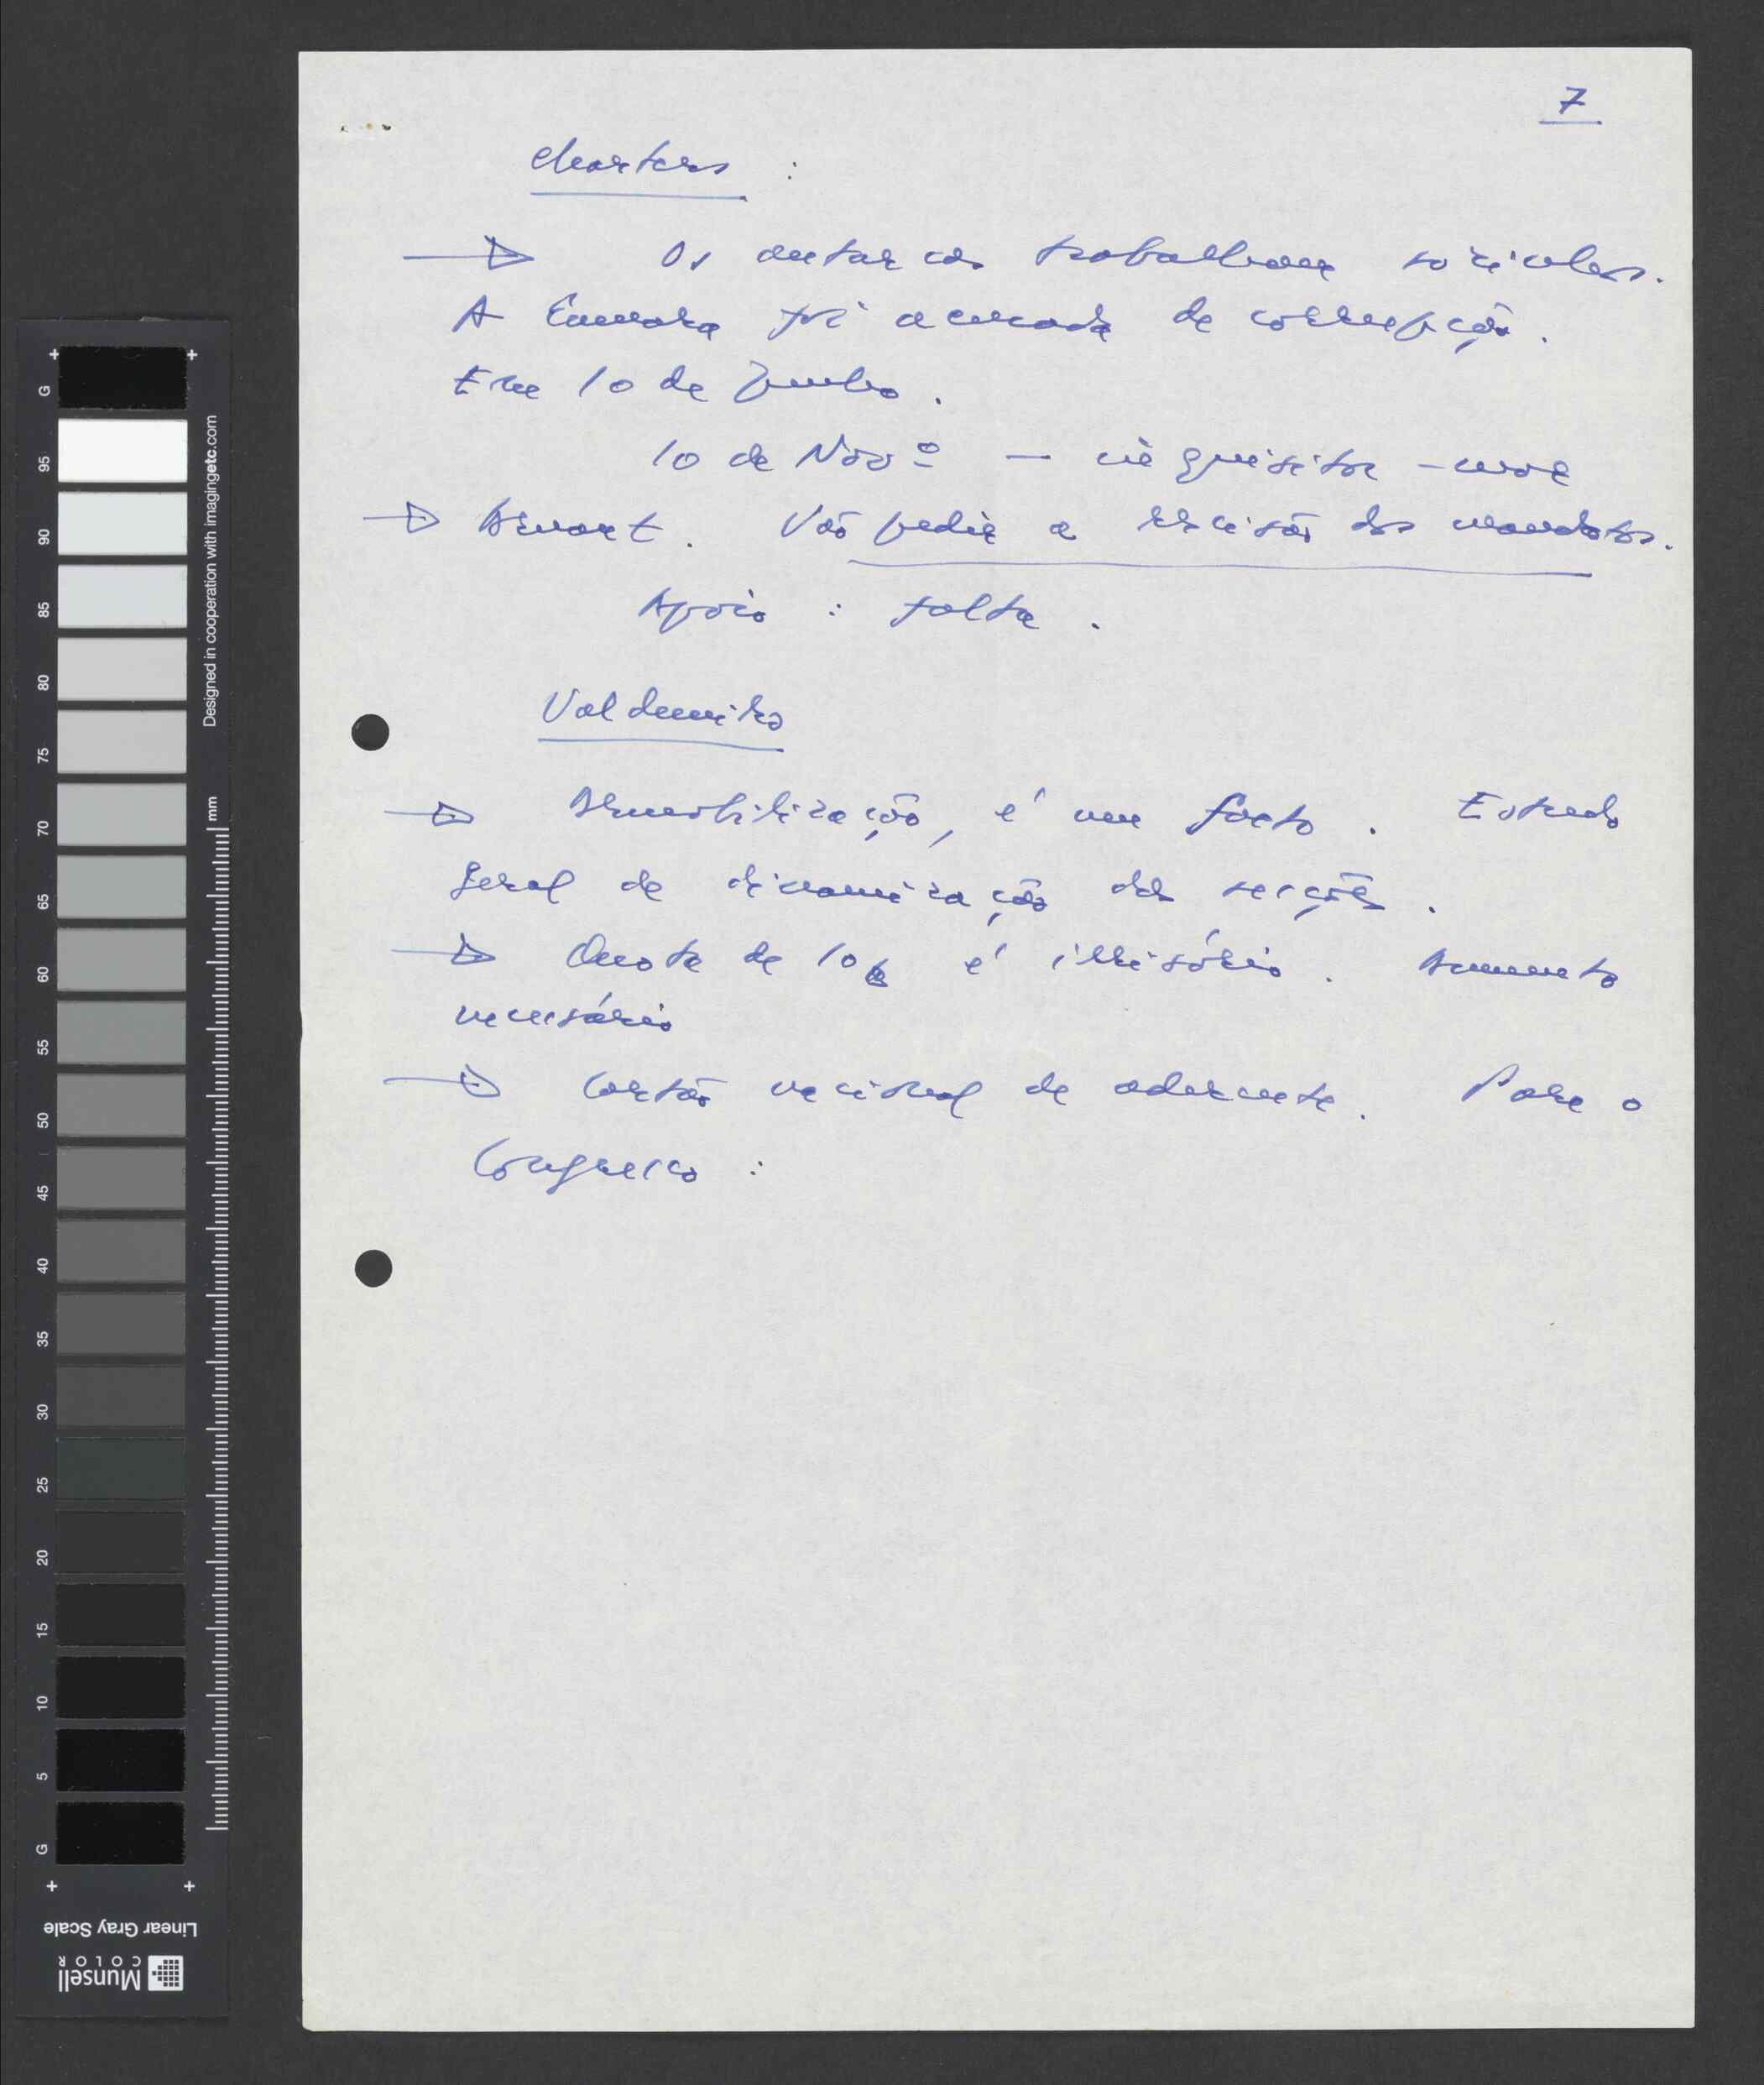 7
Martins :
→ Os autarcas trabalham
A Câmara foi acusada de corrupção.
Em 10 de Junho.
10 de Novº — inquisitor -mor
→ Vão pedir a rescisão dos mandatos.
Apoio : falta .
Valdemiro
→ Desmobilização, é um facto . Estudo
geral de dinamização das secções .
→ Quota de 10$ é ilusório . Aumento
necessário
→ Cartão nacional de aderente. Para o
Congresso :
G
95
90
85
80
75
70
65
60
55
50
45
40
35
30
25
20
15
10
5
G
Designed in cooperation with imagingetc.com
mm
Linear Gray Scale
Munsell
COLOR